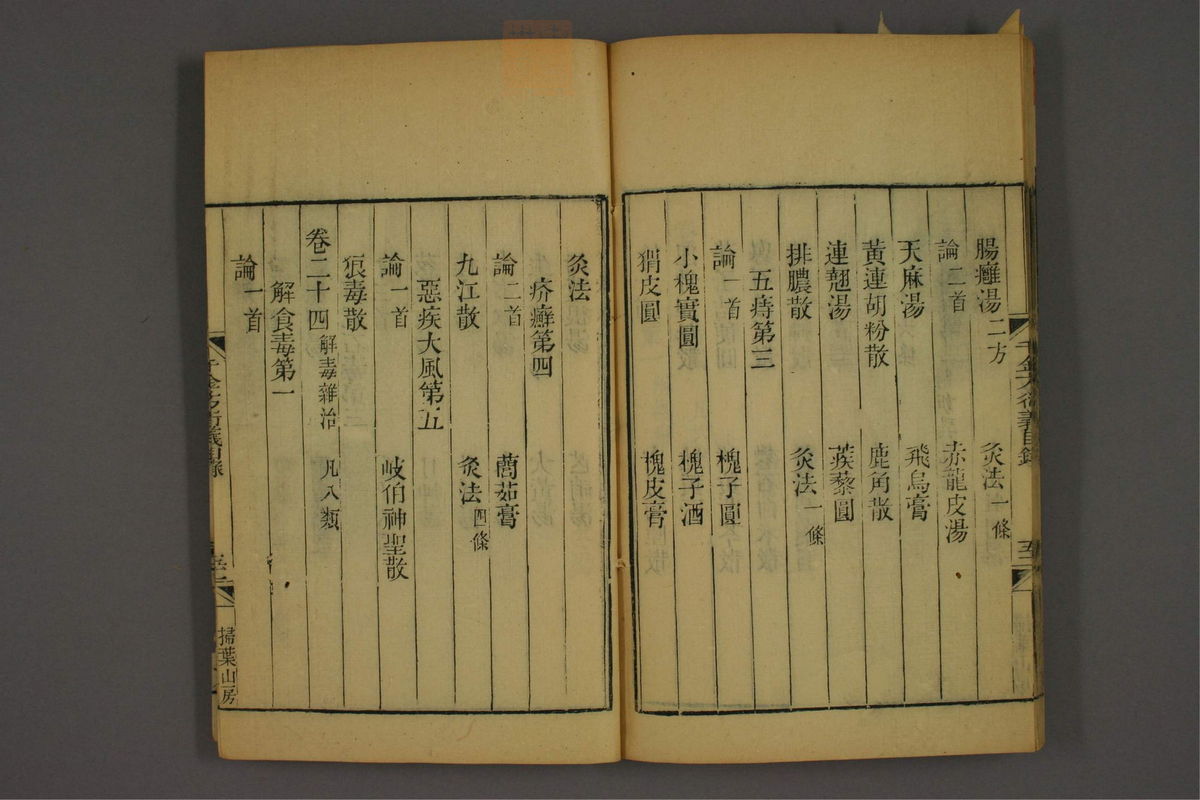 腸癰湯二方　灸法一條
論二首　赤龍皮湯
天麻湯　飛烏膏
黃連胡粉散　鹿角散
連翹湯　蒺藜圓
排膿散　灸法一條
五痔第三
論一首　槐子圓
小槐實圓　槐子酒
猬皮圓　槐皮膏
灸法
疥癬第四
論二首　藺茹膏
九江散　灸法四條
惡疾大風第五
論一首　岐伯神聖散
狼毒散
卷二十四解毒雜治　凡八類
解食毒第一
論一首
千金方衍義目錄
掃葉山房